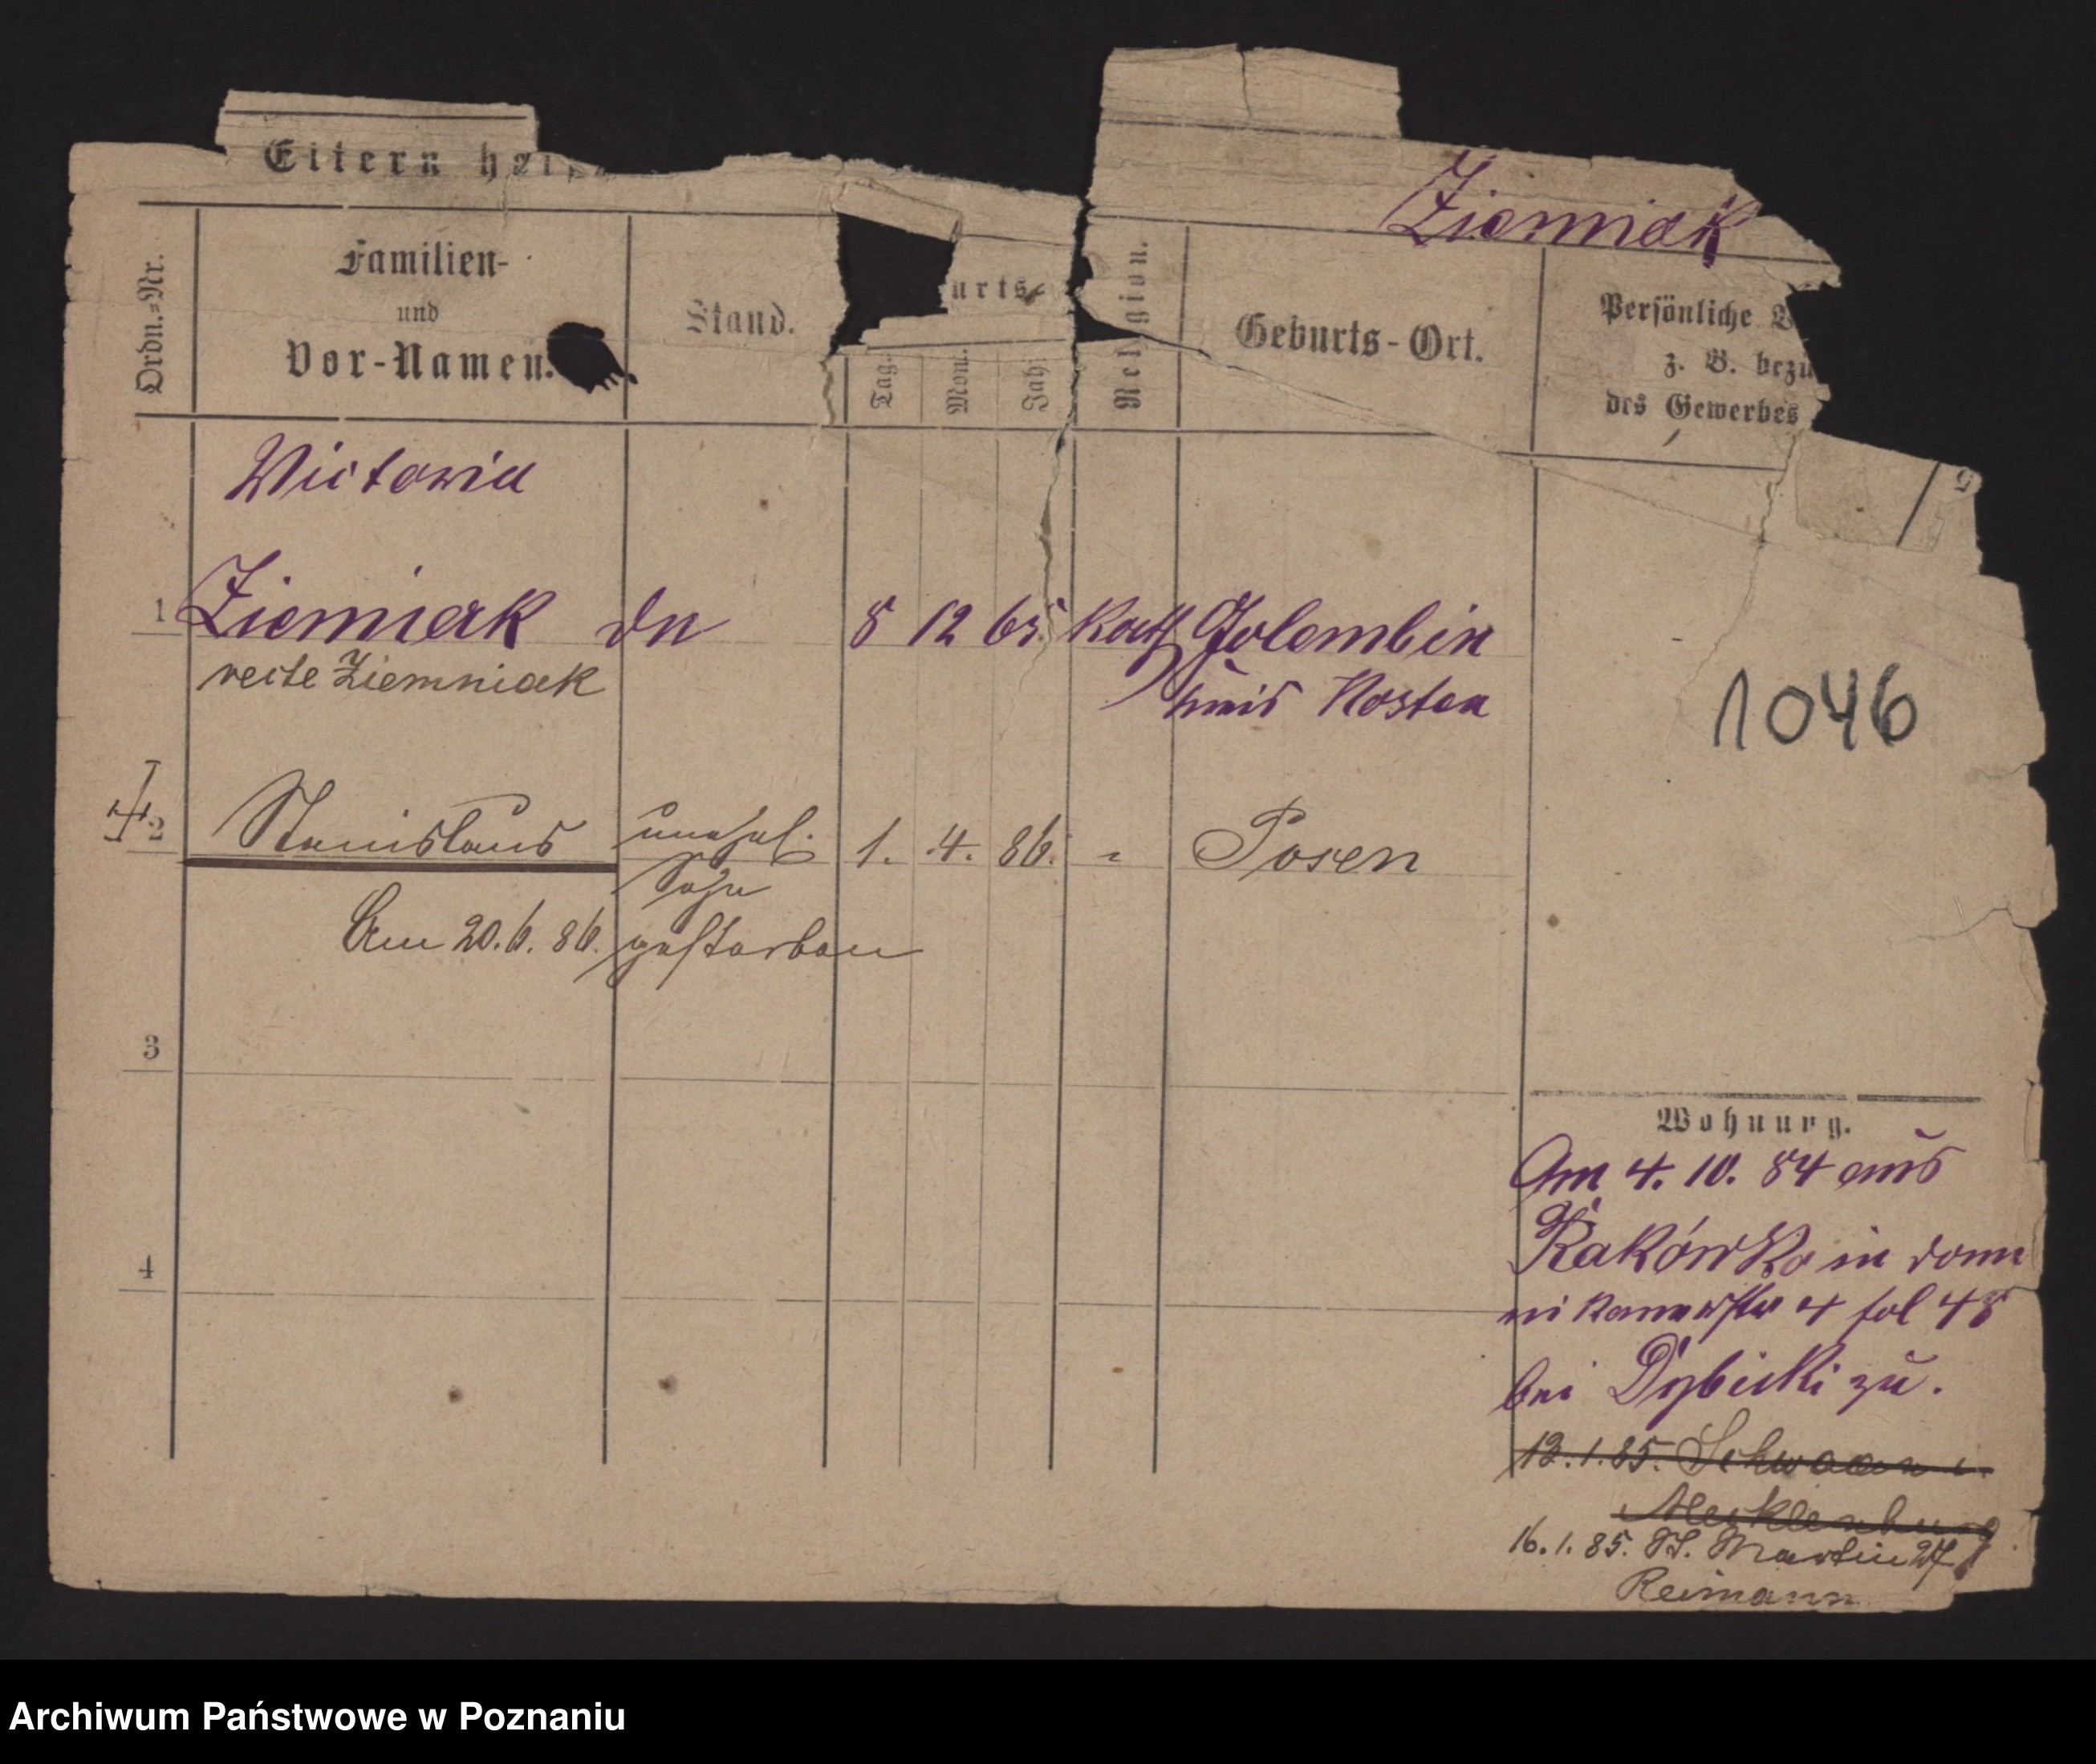 Eltern hei
Ziemiak
Ordn.-Nr.
Familien-
und
Vor-Namen.
Stand.
urts-
Tag.
Mon.
Jahr
Religion.
Geburts-Ort.
Persönliche V
z. B. bezü
des Gewerbes
Victoria
1 Ziemiak 8 12 65 Kath Golembin
recte Ziemniak Kreis Kosten
1046
2 Stanislaus unehel. 1. 4. 86. " Posen
Sohn
Am 20.6.86. gestorben
3
Wohnung.
Am 4. 10. 84 aus
Rakówko in Domi
nikanerstr 4 fol 48
4
bei Dybicki zu.
12.1.85. Schwaan i.
Mecklenburg
16.1.85. St. Martin 27
Reimann
Archiwum Państwowe w Poznaniu